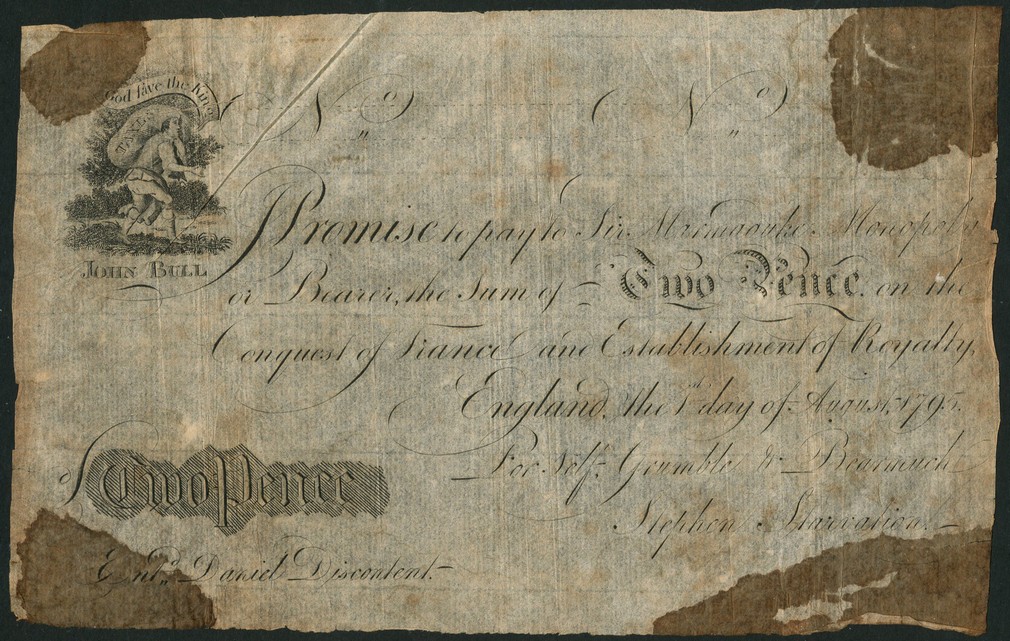 God save the King
TAXES
JOHN BULL
No No
I Promise to pay to Sir Marmaduke Monopoly
or Bearer, the Sum of Two Pence on the
Conquest of France and Establishment of Royalty,
England, the 1st day of August, 1795.
For Self, Grumble & Bearmuch
Stephen Starvation.
Two Pence
Entd. Daniel Discontent.